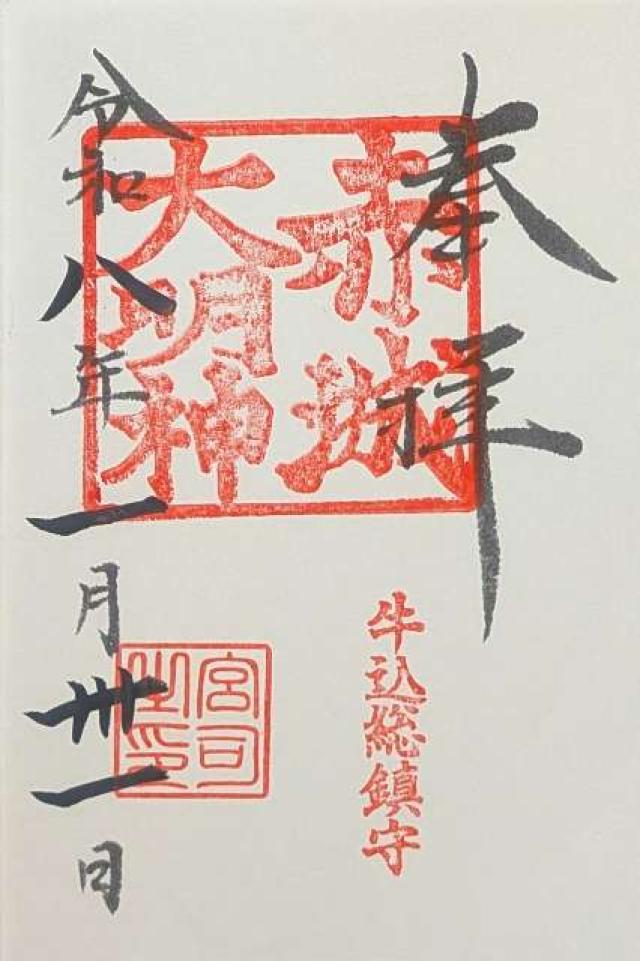 奉拝
赤城
大明神
牛込総鎮守
宮司
之印
令和八年一月卅一日